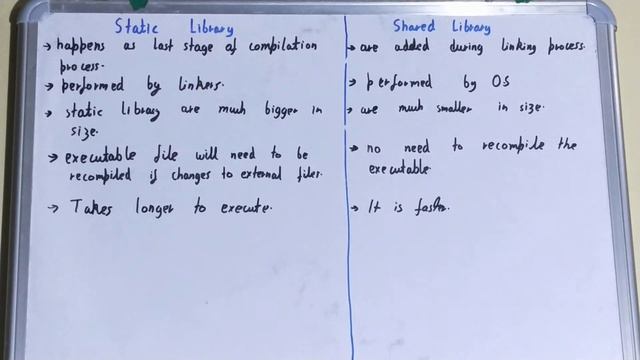 Static Library
→ happens as last stage of compilation
process.
→ performed by linkers.
→ static library are much bigger in
size.
→ executable file will need to be
recompiled if changes to external files.
→ Takes longer to execute.
Shared Library
→ are added during linking process.
→ performed by OS
→ are much smaller in size.
→ no need to recompile the
executable.
→ It is faster.